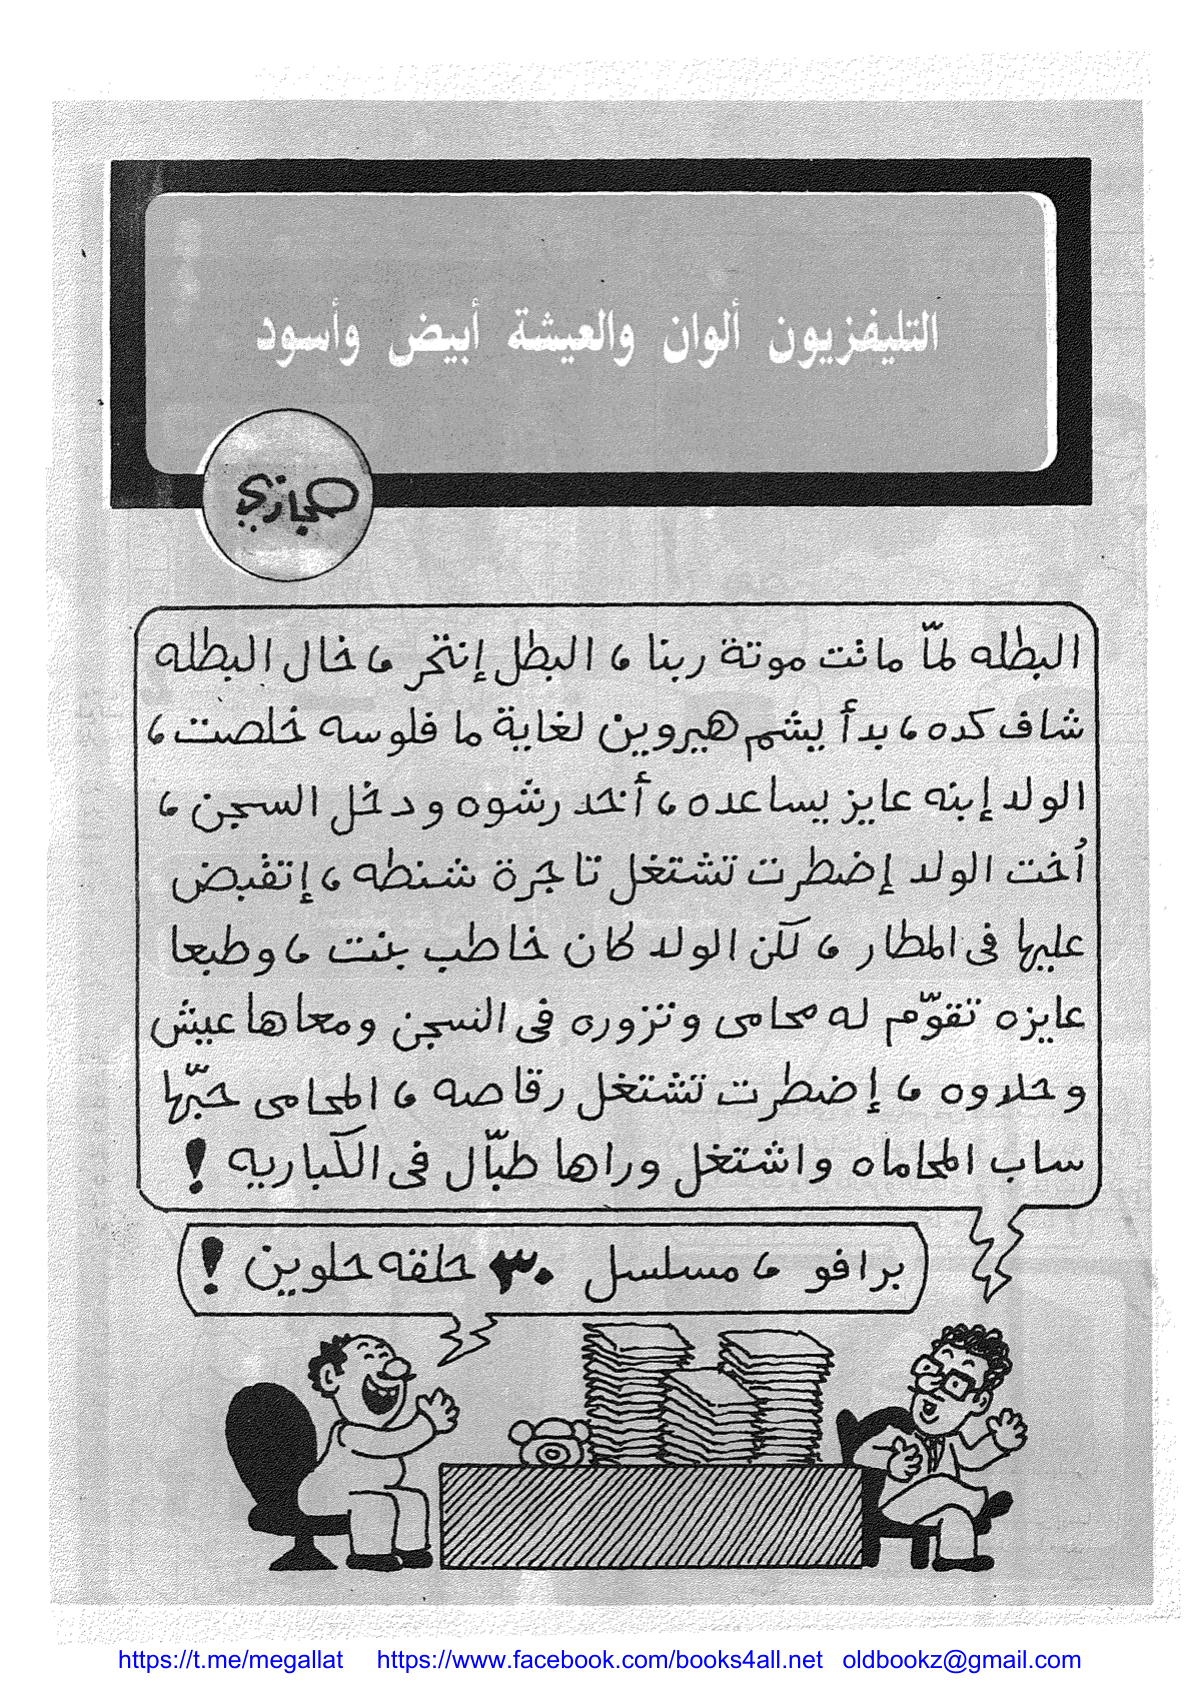 التليفزيون ألوان والعيشة أبيض وأسود
حجازي
البطله لمّا ماتت موتة ربنا، البطل إنتحر، خال البطله
شاف كده، بدأ يشم هيروين لغاية ما فلوسه خلصت،
الولد إبنه عايز يساعده، أخد رشوه ودخل السجن،
أخت الولد إضطرت تشتغل تاجرة شنطه، إتقبض
عليها فى المطار، لكن الولد كان خاطب بنت، وطبعا
عايزه تقوّم له محامى وتزوره فى السجن ومعاها عيش
وحلاوه، إضطرت تشتغل رقاصه، المحامى حبّها
ساب المحاماه واشتغل وراها طبّال فى الكباريه!
برافو، مسلسل ٣٠ حلقه حلوين!
https://t.me/megallat https://www.facebook.com/books4all.net oldbookz@gmail.com